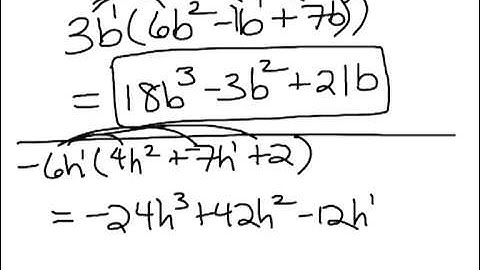 3b¹(6b² - 1b¹ + 7b⁰)
= 18b³ - 3b² + 21b
-6h¹(4h² + -7h¹ + 2)
= -24h³ + 42h² - 12h¹